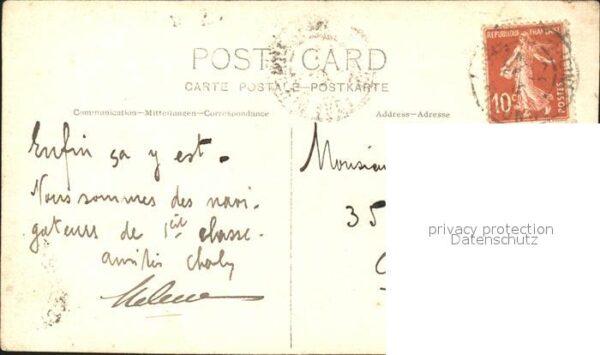 POST CARD
CARTE POSTALE – POSTKARTE
Communication – Mitteilungen – Correspondance
Address – Adresse
REPUBLIQUE FRANÇAISE
10c
POSTES
Enfin ça y est.
Nous sommes des navi-
gateurs de 1ère classe.
Amitiés
Helene
Monsieu
35
privacy protection
Datenschutz